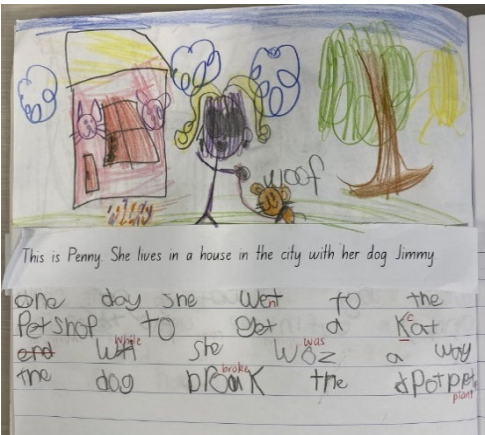 woof
This is Penny. She lives in a house in the city with her dog Jimmy
one day she went to the
Petshop to get a Kat
and while she was
woz a way
the dog broke
broak the plant